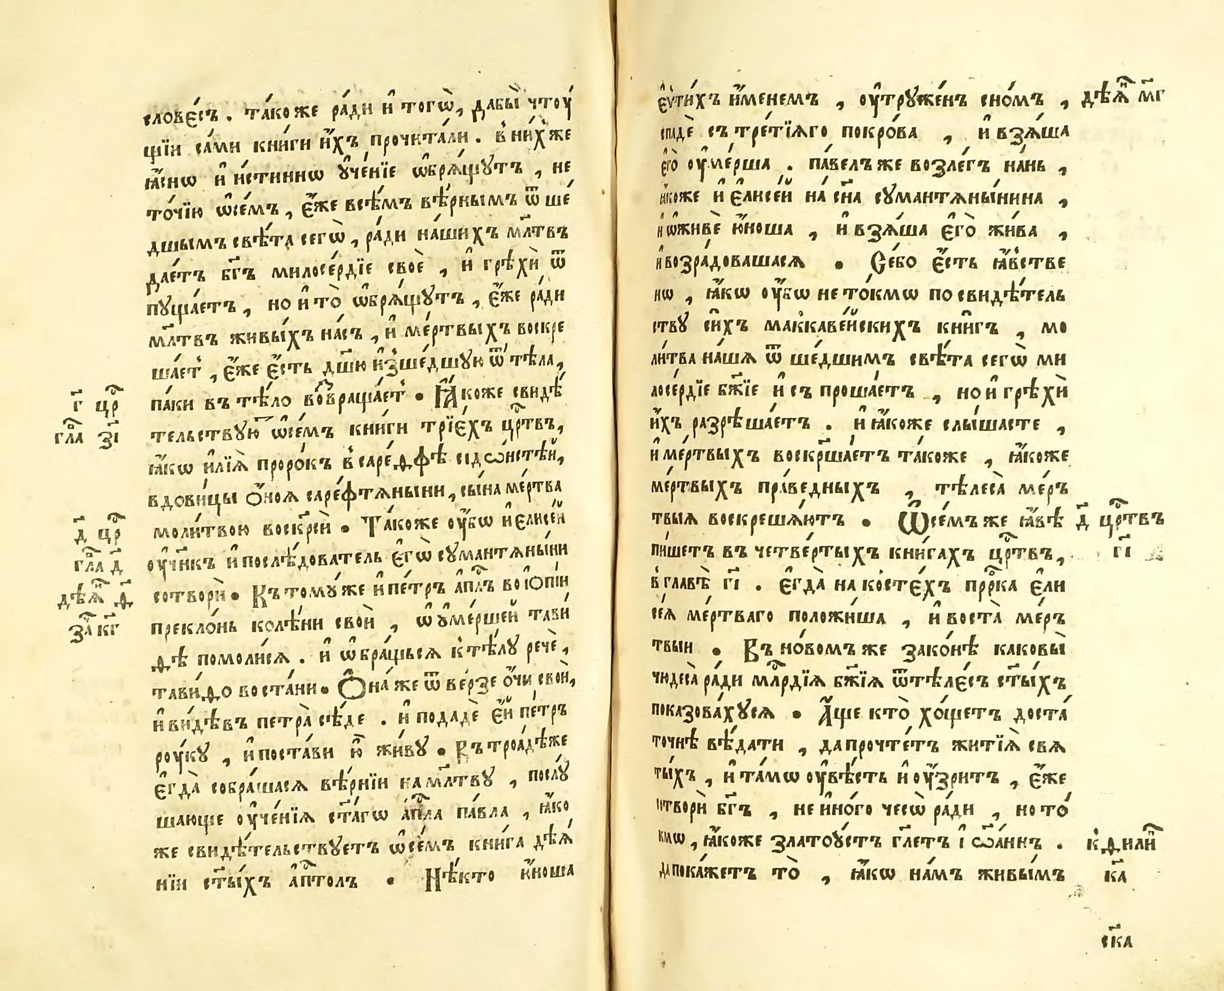 словє́съ. та́коже ра́ди и҆ тогѡ̀, дабы̀ чтꙋ́
щїи са́ми книги и҆́хъ прочита́ли. в ни́хже
ꙗ҆́снѡ и҆ и҆́стиннѡ ᲂу҆че́нїе ѡ҆брѧ́щꙋтъ, не
то́чїю ѡ҆се́мъ, є҆́же всѣ́мъ вѣ́рнымъ ѿ ше́
дшымъ свѣ́та сегѡ̀, ра́ди на́шихъ мл҃твъ
дае́тъ бг҃ъ милосе́рдїе своѐ, и҆ грѣхѝ ѿ
пꙋща́етъ, но и҆ то̀ ѡ҆брѧ́щꙋтъ, є҆́же ра́ди
мл҃твъ живы́хъ на́съ, и҆ ме́ртвыхъ воскре
ша́етъ, є҆́же є҆́сть дш҃ꙋ и҆зше́дшꙋю ѿ тѣ́ла,
г҃ цр҃
па́ки въ тѣ́ло возвраща́етъ. Ꙗ҆́коже свидѣ́
гла̀ з҃і
тельствꙋю ѡ҆се́мъ книги трїе́хъ цр҃твъ,
ꙗ҆́кѡ и҆лїѧ̀ проро́къ в саре́ѳѳѣ сідѡ́нстѣй,
вдови́цы ѻ҆́ноѧ саре́фтѧныни, сы́на ме́ртва
д҃ цр҃
моли́твою воскресѝ. Та́коже ᲂу҆́бѡ и҆ є҆лисе́й
гла̀ д҃
ᲂу҆чн҃къ и҆ послѣ́дователь є҆гѡ̀ сꙋмантѧны́ни
дѣѧ҃ н҃ ѳ҃
сотворѝ. Къ томꙋ́же и҆ пе́тръ а҆пл҃ъ во і҆ѻпі́и
за̀ к҃г
прекло́нь колѣ́ни своѝ, ѡ҆ ᲂу҆ме́ршей тави
ѳѣ́ помоли́сѧ. и҆ ѡ҆бра́щьсѧ к тѣ́лꙋ речѐ,
тави́ѳо воста́ни. Ѻ҆на́же ѿ ве́рзе ѻ҆́чи своѝ,
и҆ ви́дѣвъ петра̀ сѣ́де. и҆ подадѐ є҆́й пе́тръ
рꙋ́кꙋ, и҆ поста́ви ю҆̀ жи́вꙋ. Въ троа́дѣже
є҆гда̀ собра́шасѧ вѣ́рнїи на мл҃твꙋ, послꙋ́
шающе ᲂу҆че́нїѧ ст҃а́гѡ а҆п҃ла па́вла, ꙗ҆́ко
же свидѣ́тельствꙋетъ ѡ҆се́мъ книга дѣѧ́
нїи ст҃ы́хъ а҆п҃толъ. Нѣ́кто ю҆́ноша
є҆ѵти́хъ и҆́менемъ, ᲂу҆трꙋже́нъ сно́мъ, дѣѧ҃н м҃г
спадѐ съ тре́тїѧго покро́ва, и҆ взѧ́ша
є҆го̀ ᲂу҆ме́рша. па́велъже возле́гъ на́нь,
ꙗ҆́коже и҆ є҆лисе́й на́ сн҃а сꙋмантѧны́нина,
и҆ ѡ҆живѐ ю҆́ноша, и҆ взѧ́ша є҆го̀ жи́ва,
и҆ возра́довашасѧ. Се́бо є҆́сть ꙗ҆́встве
нѡ, ꙗ҆́кѡ ᲂу҆́бѡ не то́кмѡ по свидѣ́тель
ствꙋ си́хъ маккаве́йскихъ кни́гъ, мо
ли́тва на́ша ѿ ше́дшимъ свѣ́та сегѡ̀ ми
лосе́рдїе бж҃їе и҆ съ проша́етъ, но и҆ грѣхѝ
и҆́хъ разрѣша́етъ. и҆ ꙗ҆́коже слы́шасте,
и҆ ме́ртвыхъ воскрша́етъ та́коже, ꙗ҆́коже
ме́ртвыхъ пра́ведныхъ, тѣлеса̀ ме́р
твыѧ воскрешѧ́ютъ. Ѿ се́мъже ꙗ҆́вѣ д҃ цр҃твъ
пи́шетъ въ четве́ртыхъ кни́гахъ цр҃твъ, г҃і
в главѣ̀ г҃і. є҆гда̀ на косте́хъ прⷪ҇ка є҆ли
се́ѧ ме́ртваго положи́ша, и҆ воста̀ ме́р
твыи. Въ но́вомъже зако́нѣ каковы̀
чꙋдеса̀ ра́ди млⷭ҇рдїѧ бж҃їѧ ѿтѣле́съ ст҃ы́хъ
показова́хꙋсѧ. А҆́ще кто̀ хо́щетъ доста́
точнѣ вѣ́дати, да прочте́тъ житїѧ̀ свѧ
ты́хъ, и҆ та́мѡ ᲂу҆вѣ́сть и҆ ᲂу҆́зритъ, є҆́же
сотворѝ бг҃ъ, не и҆но́гѡ чесѡ̀ ра́ди, но то́
кмѡ, ꙗ҆́коже злато́ꙋстъ гл҃етъ і҆ ѡ҆а́ннъ. к ѳили҃п
да пока́жетъ то̀, ꙗ҆́кѡ на́мъ живы́мъ к҃а
ск҃а